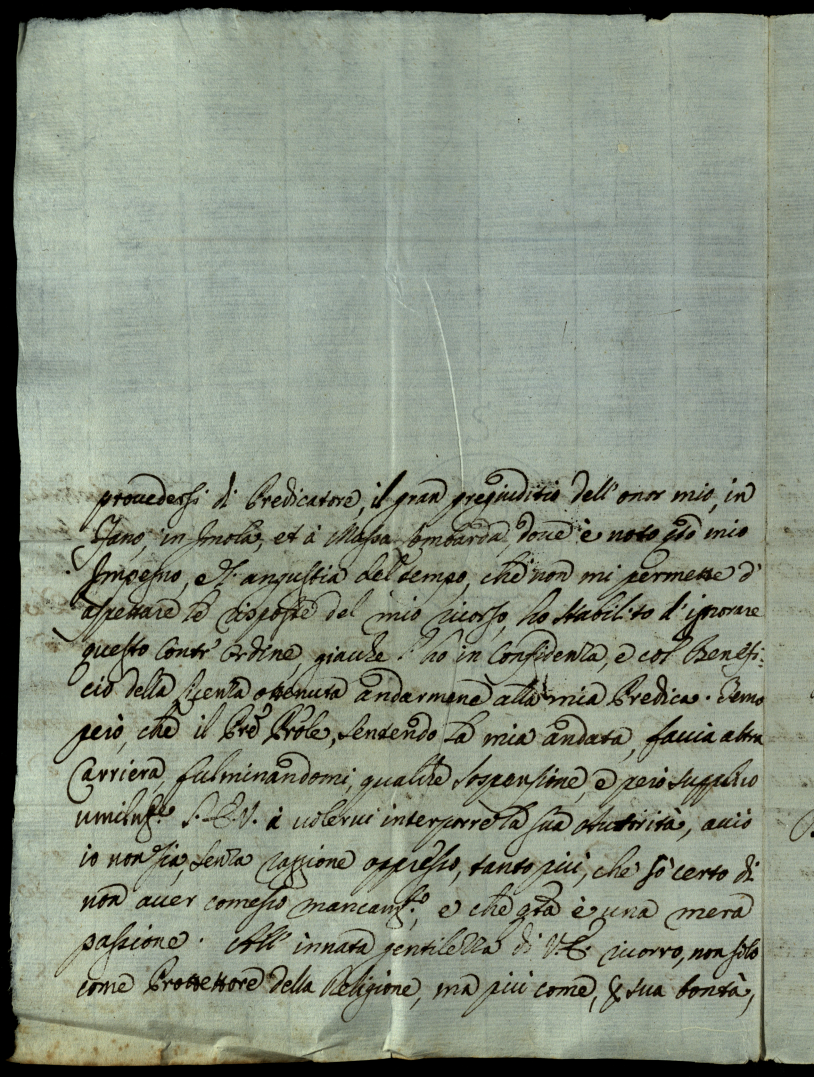 provedersi di Predicatore, il gran pregiuditio dell'onor mio, in
Fano, in Imola, et à Massa Lombarda, dove è noto q̃to mio
Impegno, e l'angustia del tempo, che non mi permette d'
aspettare le risposte del mio ricorso, ho stabilito d'ignorare
questo Contr'ordine, giache l'ho in Confidenza, e col Benefi:
cio della licenza ottenuta andarmene alla mia Predica. Temo
però, che il Prẽ Prõle, sentendo la mia andata, faccia altra
Carriera, fulminandomi, qualche sospensione, e però supplico
umilm.te S. E. V. à volervi interporre la sua autorità, acciò
io non sia, senza raggione oppresso, tanto più, che sò certo di
non aver comesso mancam.to, e che q̃ta è una mera
passione. All'innata gentilezza di V. E. ricorro, non solo
come Protettore della Religione, ma più come, p̃ sua bontà,